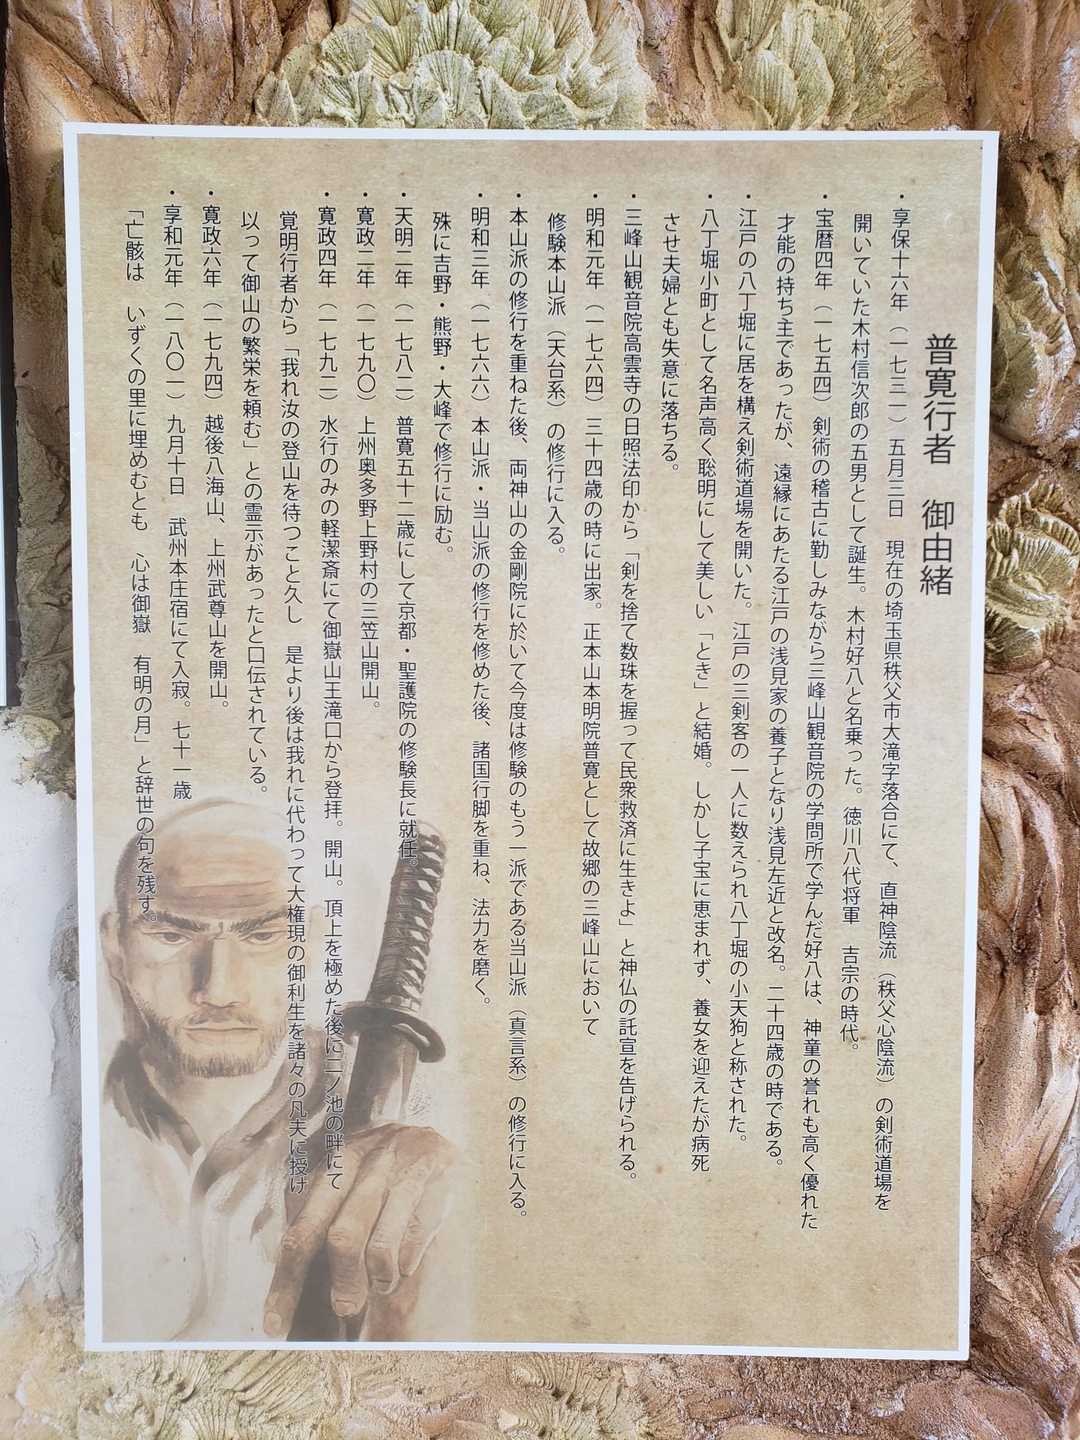 普寛行者　御由緒
・享保十六年（一七三一）五月三日　現在の埼玉県秩父市大滝字落合にて、直神陰流（秩父心陰流）の剣術道場を
開いていた木村信次郎の五男として誕生。木村好八と名乗った。徳川八代将軍　吉宗の時代。
・宝暦四年（一七五四）剣術の稽古に勤しみながら三峰山観音院の学問所で学んだ好八は、神童の誉れも高く優れた
才能の持ち主であったが、遠縁にあたる江戸の浅見家の養子となり浅見左近と改名。二十四歳の時である。
・江戸の八丁堀に居を構え剣術道場を開いた。江戸の三剣客の一人に数えられ八丁堀の小天狗と称された。
・八丁堀小町として名声高く聡明にして美しい「とき」と結婚。しかし子宝に恵まれず、養女を迎えたが病死
させ夫婦とも失意に落ちる。
・三峰山観音院高雲寺の日照法印から「剣を捨て数珠を握って民衆救済に生きよ」と神仏の託宣を告げられる。
・明和元年（一七六四）三十四歳の時に出家。正本山本明院普寛として故郷の三峰山において
修験本山派（天台系）の修行に入る。
・本山派の修行を重ねた後、両神山の金剛院に於いて今度は修験のもう一派である当山派（真言系）の修行に入る。
・明和三年（一七六六）本山派・当山派の修行を修めた後、諸国行脚を重ね、法力を磨く。
殊に吉野・熊野・大峰で修行に励む。
・天明二年（一七八二）普寛五十二歳にして京都・聖護院の修験長に就任。
・寛政二年（一七九〇）上州奥多野上野村の三笠山開山。
・寛政四年（一七九二）水行のみの軽潔斎にて御嶽山王滝口から登拝。開山。頂上を極めた後に二ノ池の畔にて
覚明行者から「我れ汝の登山を待つこと久し　是より後は我れに代わって大権現の御利生を諸々の凡夫に授け
以って御山の繁栄を頼む」との霊示があったと口伝されている。
・寛政六年（一七九四）越後八海山、上州武尊山を開山。
・享和元年（一八〇一）九月十日　武州本庄宿にて入寂。七十一歳
「亡骸は　いずくの里に埋めむとも　心は御嶽　有明の月」と辞世の句を残す。